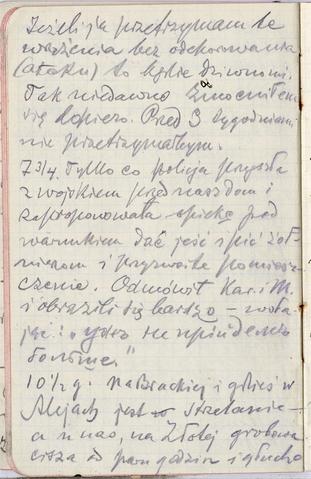 Jeżeli ja przetrzymam te
wrażenia bez odchorowania
(ataku) to będzie dziwnem.
Tak niedawno zmocniłem
się dopiero. Przed 3 tygodniami
nie przetrzymałbym.
7 3/4. Tylko co policja przyszła
z wojskiem przed nasz dom i
zaproponowała opiekę pod
warunkiem dać jeść i pić żoł-
nierzom i przyzwoite pomiesz-
czenie. Odmówił Kar. i M.
i obrazili się bardzo – woła-
jąc:
10 1/2 g. na Brackiej i gdzieś w
Alejach jest strzelanie –
a u nas, na Złotej grobowa
cisza od paru godzin i głucho